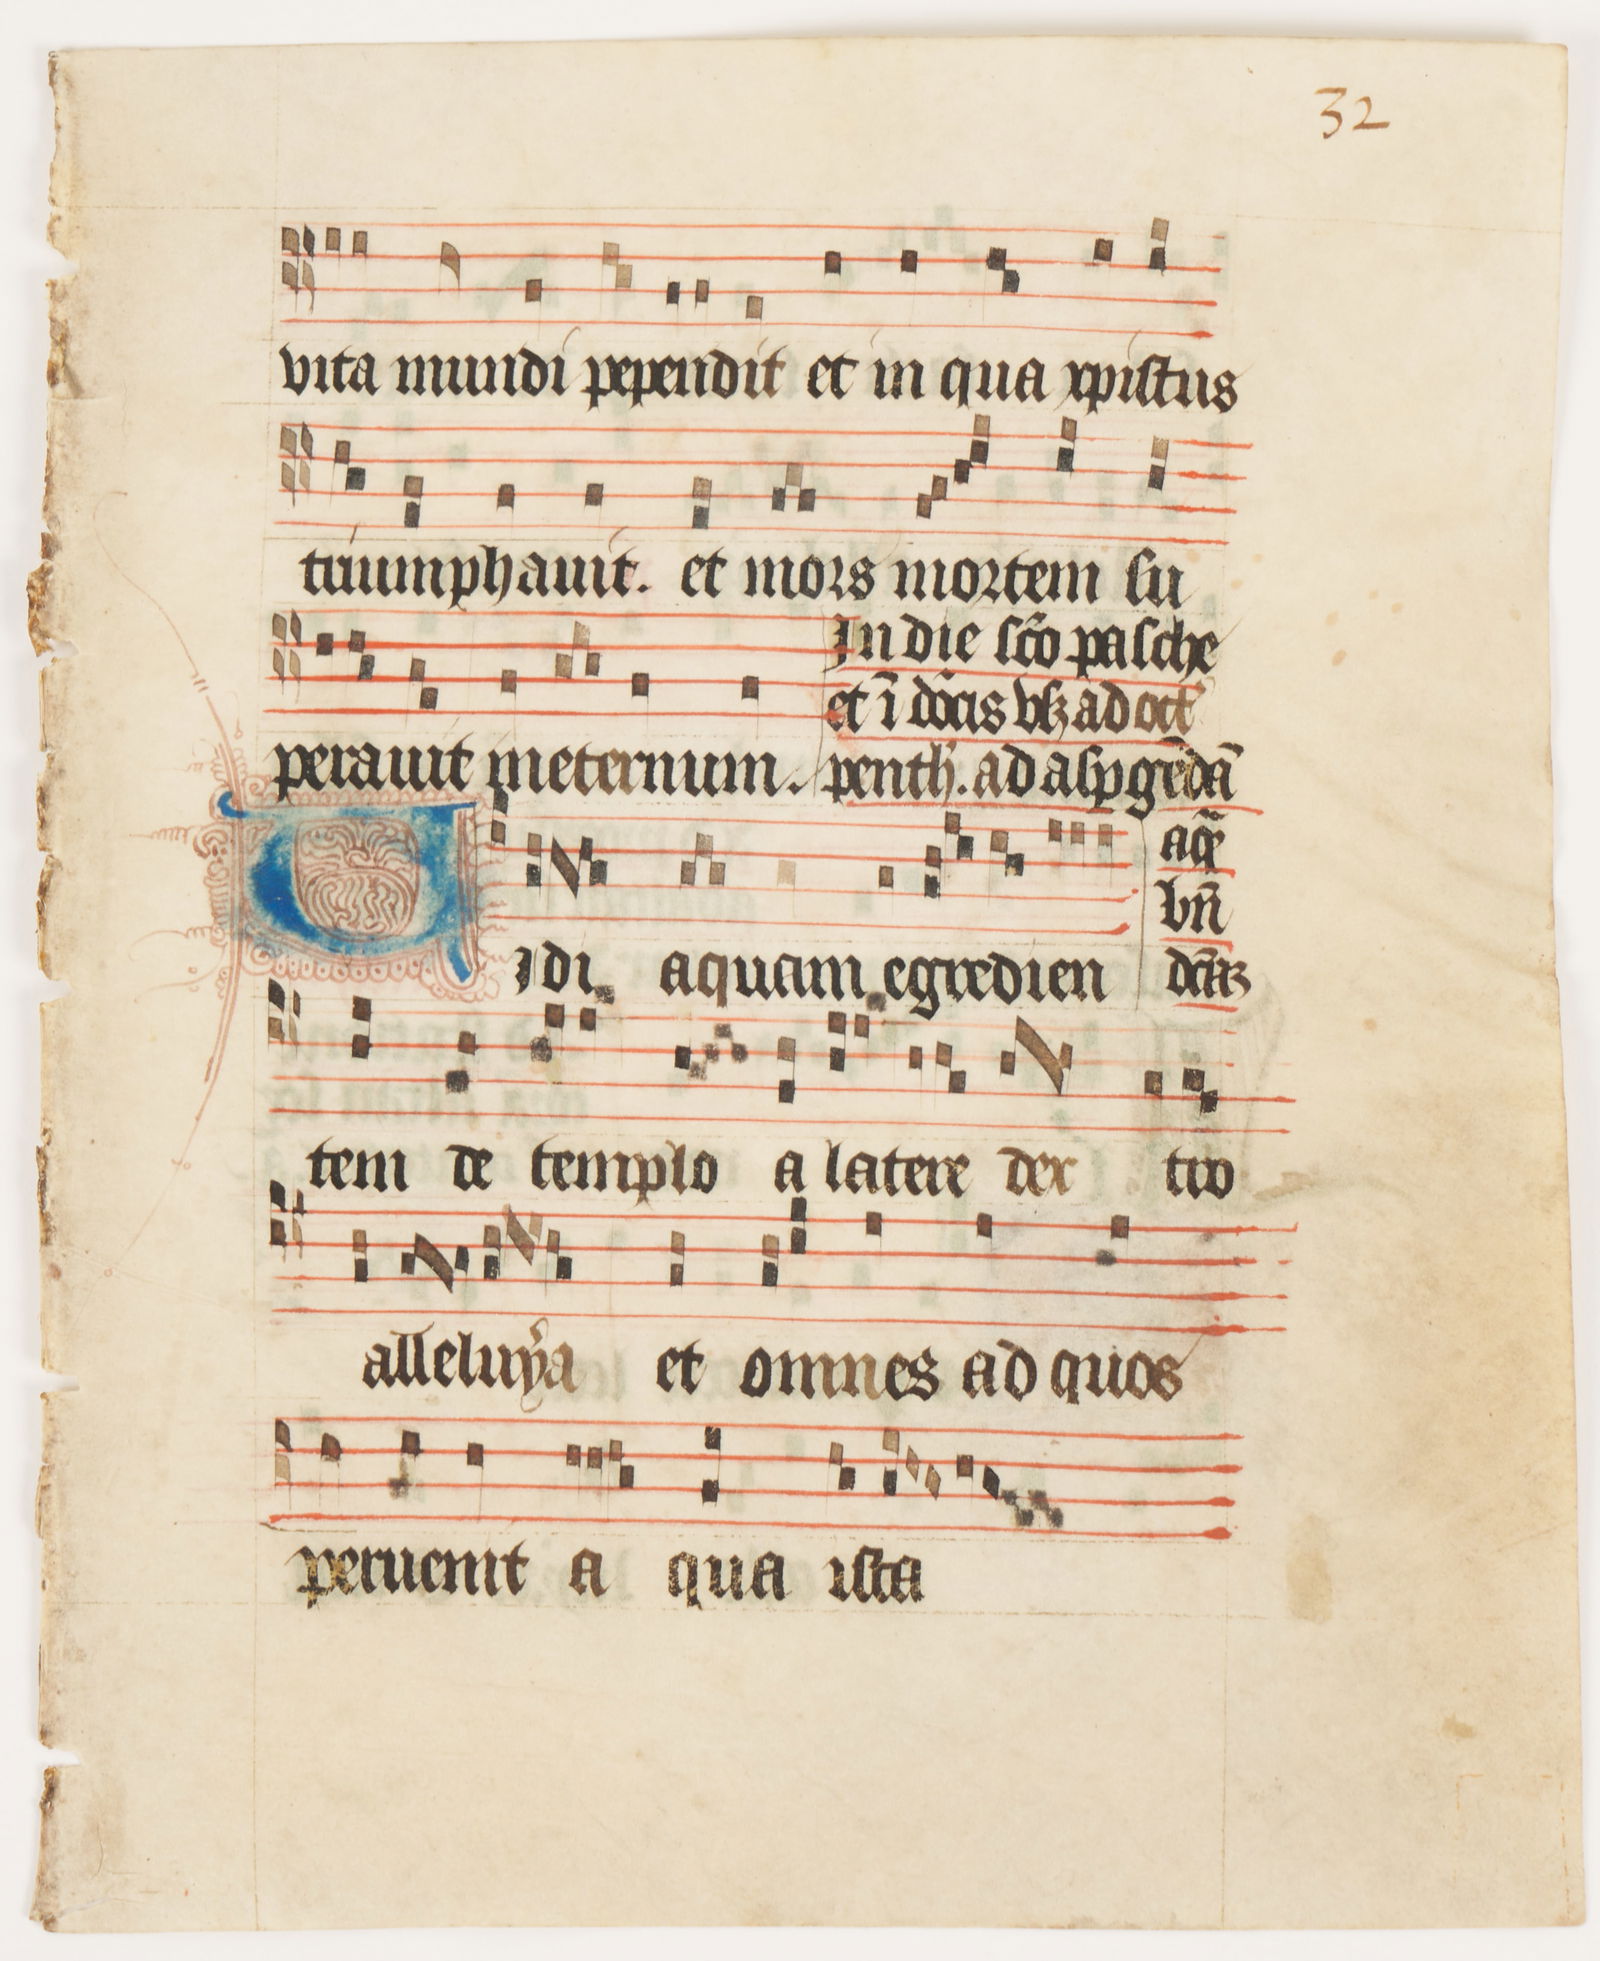 32
vita mundi pependit et in qua xpistus
triumphauit. et mors mortem su
In die sc̄o pasche
et ī dn̄icis vsꝫ ad oct̄
perauit ineternum. penth̄. ad asꝑgēdā
aq̄
bn̄
Vidi aquam egredien
tem de templo a latere dex tro
alleluẏa et omnes ad quos
peruenit a qua ista